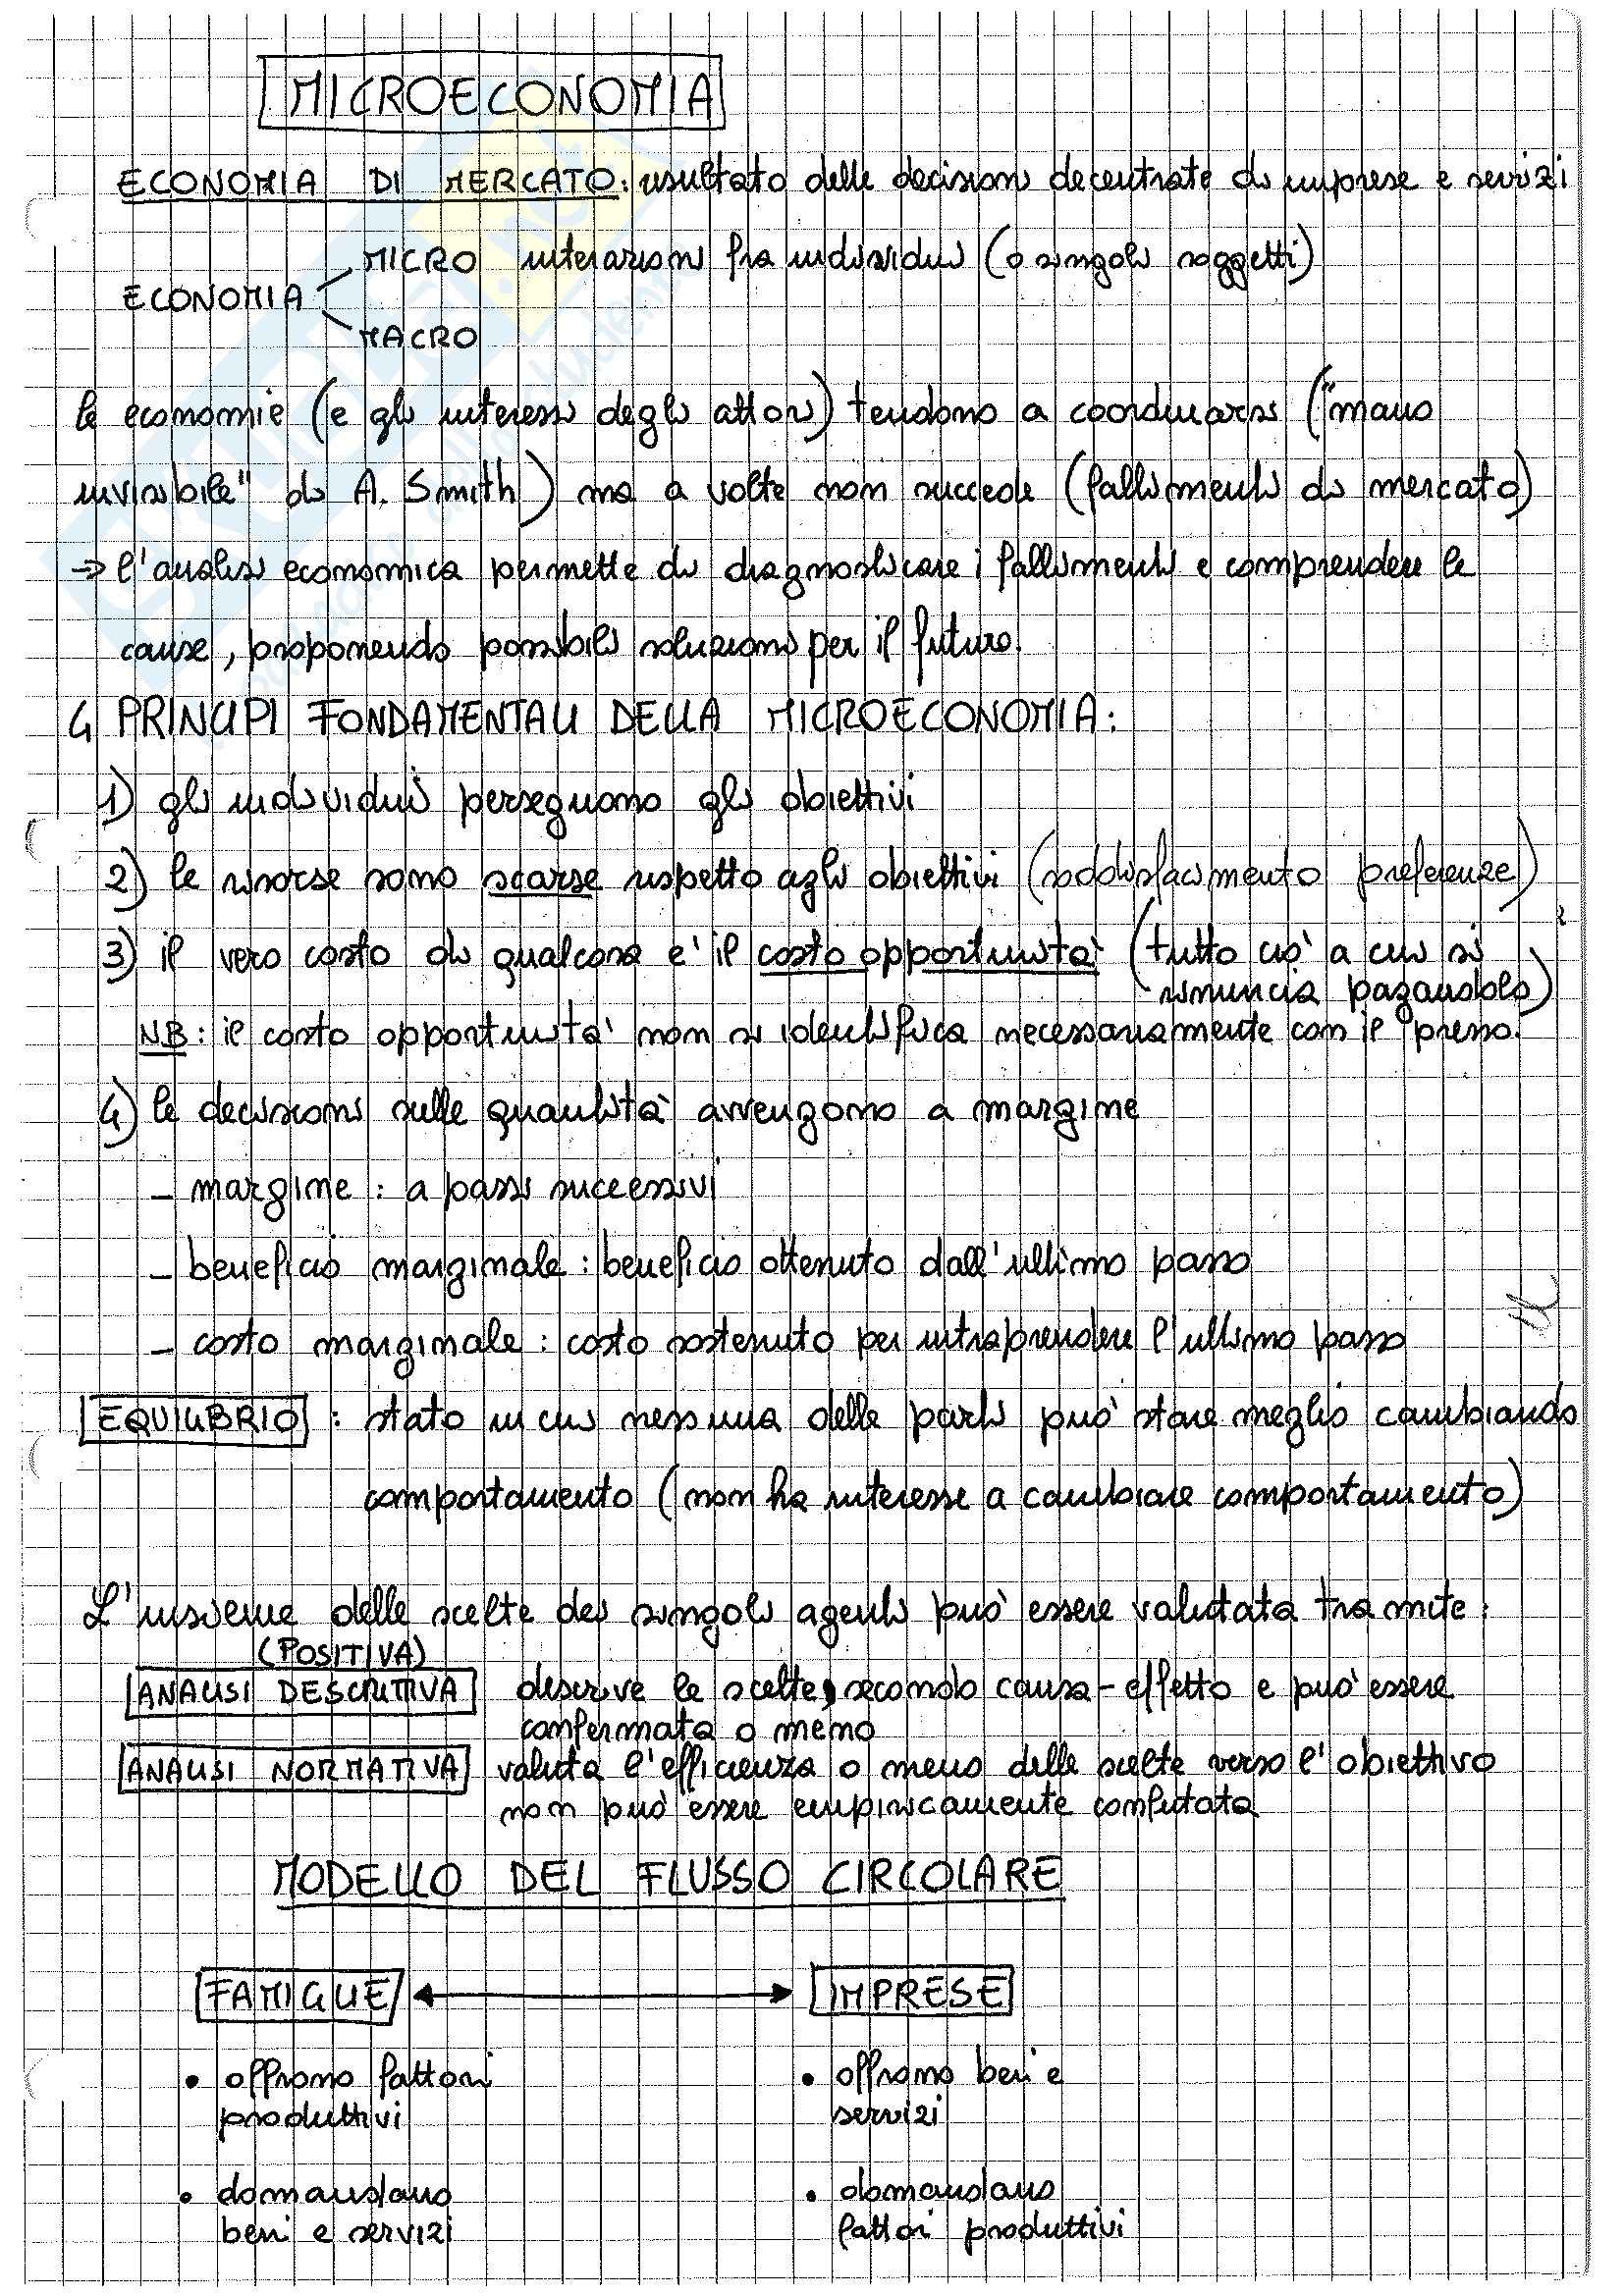 MICROECONOMIA
ECONOMIA DI MERCATO: risultato delle decisioni decentrate di imprese e servizi
MICRO interazioni fra individui (o singoli soggetti)
ECONOMIA
MACRO
le economie (e gli interessi degli attori) tendono a coordinarsi ("mano
invisibile" di A. Smith) ma a volte non succede (fallimenti di mercato)
→ l'analisi economica permette di diagnosticare i fallimenti e comprendere le
cause, proponendo possibili soluzioni per il futuro.
4 PRINCIPI FONDAMENTALI DELLA MICROECONOMIA:
1) gli individui perseguono gli obiettivi
2) le risorse sono scarse rispetto agli obiettivi (soddisfacimento preferenze)
3) il vero costo di qualcosa e' il costo opportunità (tutto ciò a cui si
rinuncia pagandolo)
N.B: il costo opportunità non si identifica necessariamente con il prezzo.
4) le decisioni sulle quantità avvengono a margine
- margine: a passi successivi
- beneficio marginale: beneficio ottenuto dall'ultimo passo
- costo marginale: costo sostenuto per intraprendere l'ultimo passo
EQUILIBRIO: stato in cui nessuna delle parti può stare meglio cambiando
comportamento (non ha interesse a cambiare comportamento)
L'insieme delle scelte dei singoli agenti può essere valutata tramite:
(POSITIVA)
ANALISI DESCRITTIVA descrive le scelte, secondo causa-effetto e può essere
confermata o meno
ANALISI NORMATIVA valuta l'efficienza o meno delle scelte verso l'obiettivo
non può essere empiricamente confutata
MODELLO DEL FLUSSO CIRCOLARE
FAMIGLIE ↔ IMPRESE
• offrono fattori produttivi
• offrono beni e servizi
• domandano beni e servizi
• domandano fattori produttivi